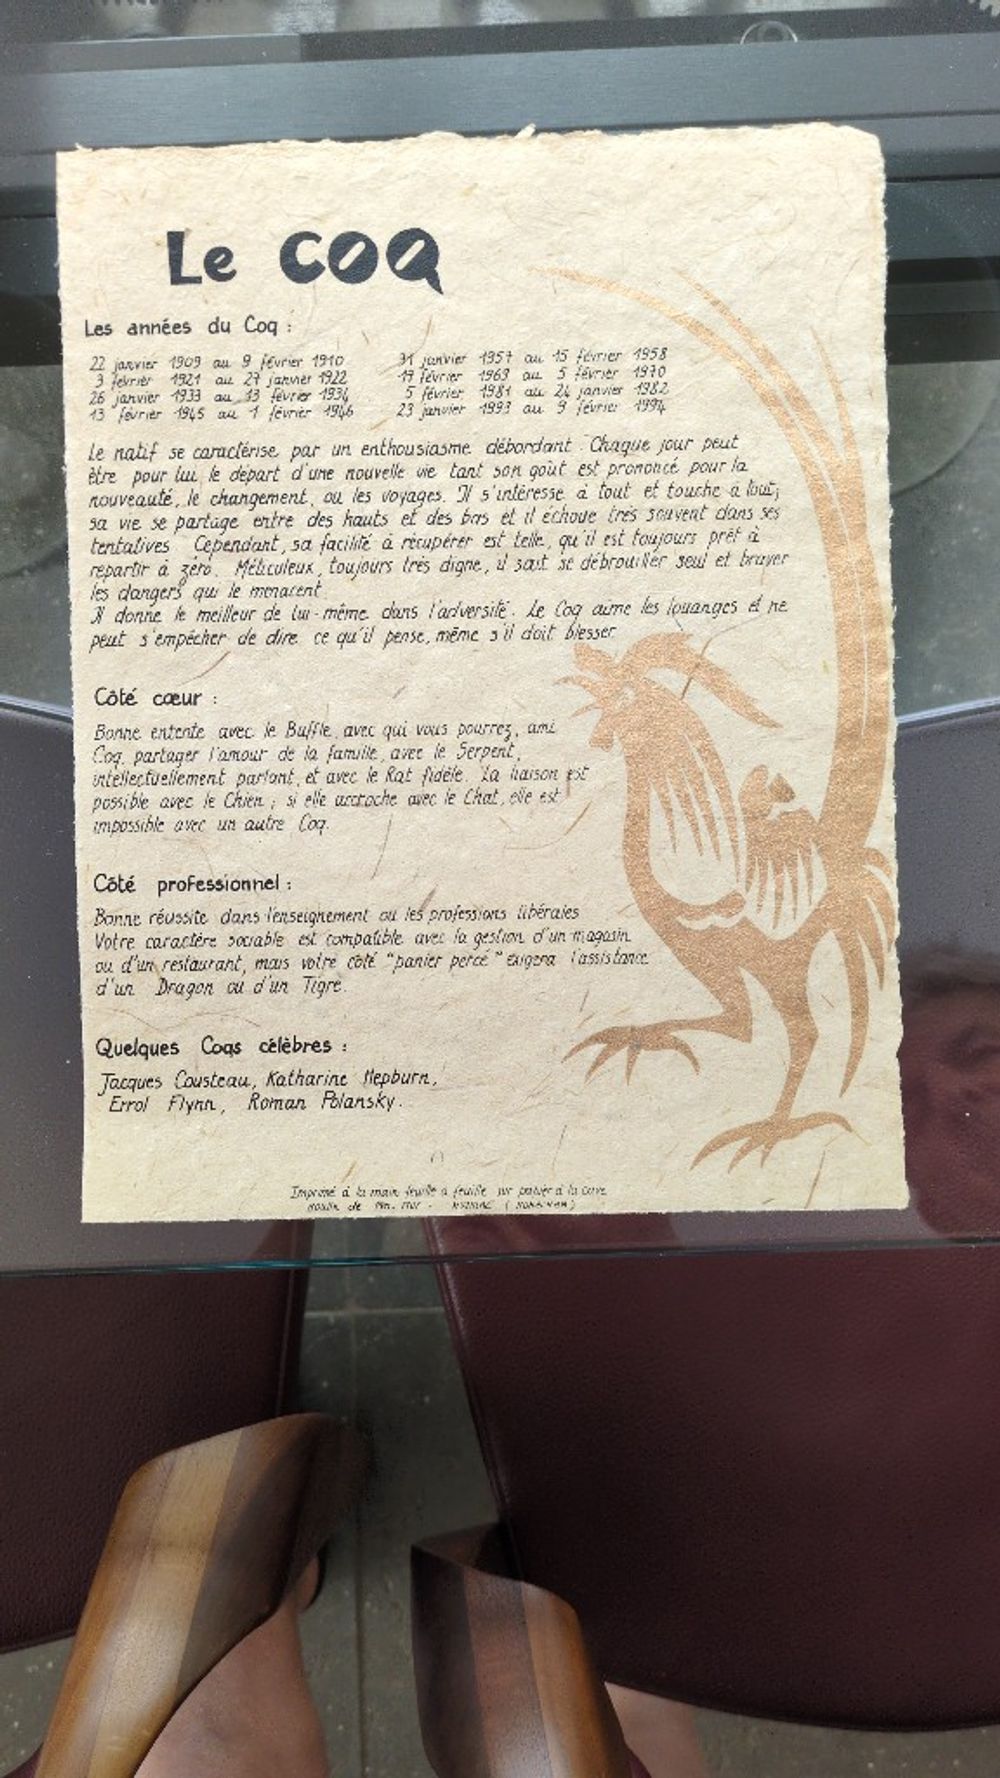 Le COQ
Les années du Coq :
22 janvier 1909 au 9 février 1910
3 février 1921 au 27 janvier 1922
26 janvier 1933 au 13 février 1934
13 février 1945 au 1 février 1946
31 janvier 1957 au 15 février 1958
17 février 1969 au 5 février 1970
5 février 1981 au 24 janvier 1982
23 janvier 1993 au 9 février 1994
Le natif se caractérise par un enthousiasme débordant. Chaque jour peut
être pour lui le départ d'une nouvelle vie tant son goût est prononcé pour la
nouveauté, le changement, ou les voyages. Il s'intéresse à tout et touche à tout;
sa vie se partage entre des hauts et des bas et il échoue très souvent dans ses
tentatives. Cependant, sa facilité à récupérer est telle, qu'il est toujours prêt à
repartir à zéro. Méticuleux, toujours très digne, il sait se débrouiller seul et braver
les dangers qui le menacent.
Il donne le meilleur de lui-même dans l'adversité. Le Coq aime les louanges et ne
peut s'empêcher de dire ce qu'il pense, même s'il doit blesser.
Côté cœur :
Bonne entente avec le Buffle, avec qui vous pourrez, ami
Coq, partager l'amour de la famille, avec le Serpent,
intellectuellement parlant, et avec le Rat fidèle. La liaison est
possible avec le Chien ; si elle accroche avec le Chat, elle est
impossible avec un autre Coq.
Côté professionnel :
Bonne réussite dans l'enseignement ou les professions libérales
Votre caractère sociable est compatible avec la gestion d'un magasin
ou d'un restaurant, mais votre côté "panier percé" exigera l'assistance
d'un Dragon ou d'un Tigre.
Quelques Coqs célèbres :
Jacques Cousteau, Katharine Hepburn,
Errol Flynn, Roman Polansky.
Imprimé à la main feuille à feuille sur papier à la cuve
moulin de